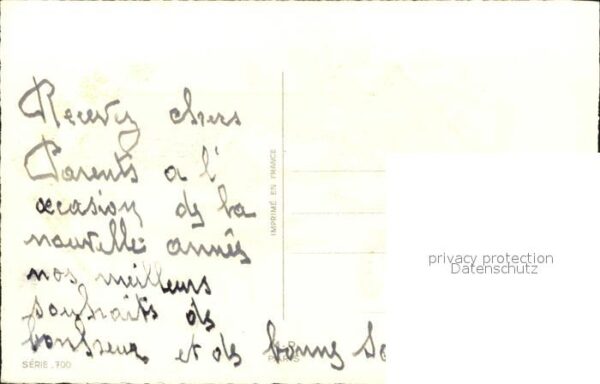 Recevez chers
Parents a l'
occasion de la
nouvelle année
nos meilleurs
souhaits de
bonheur et de bonne
SÉRIE .700
PARIS
IMPRIMÉ EN FRANCE
privacy protection
Datenschutz